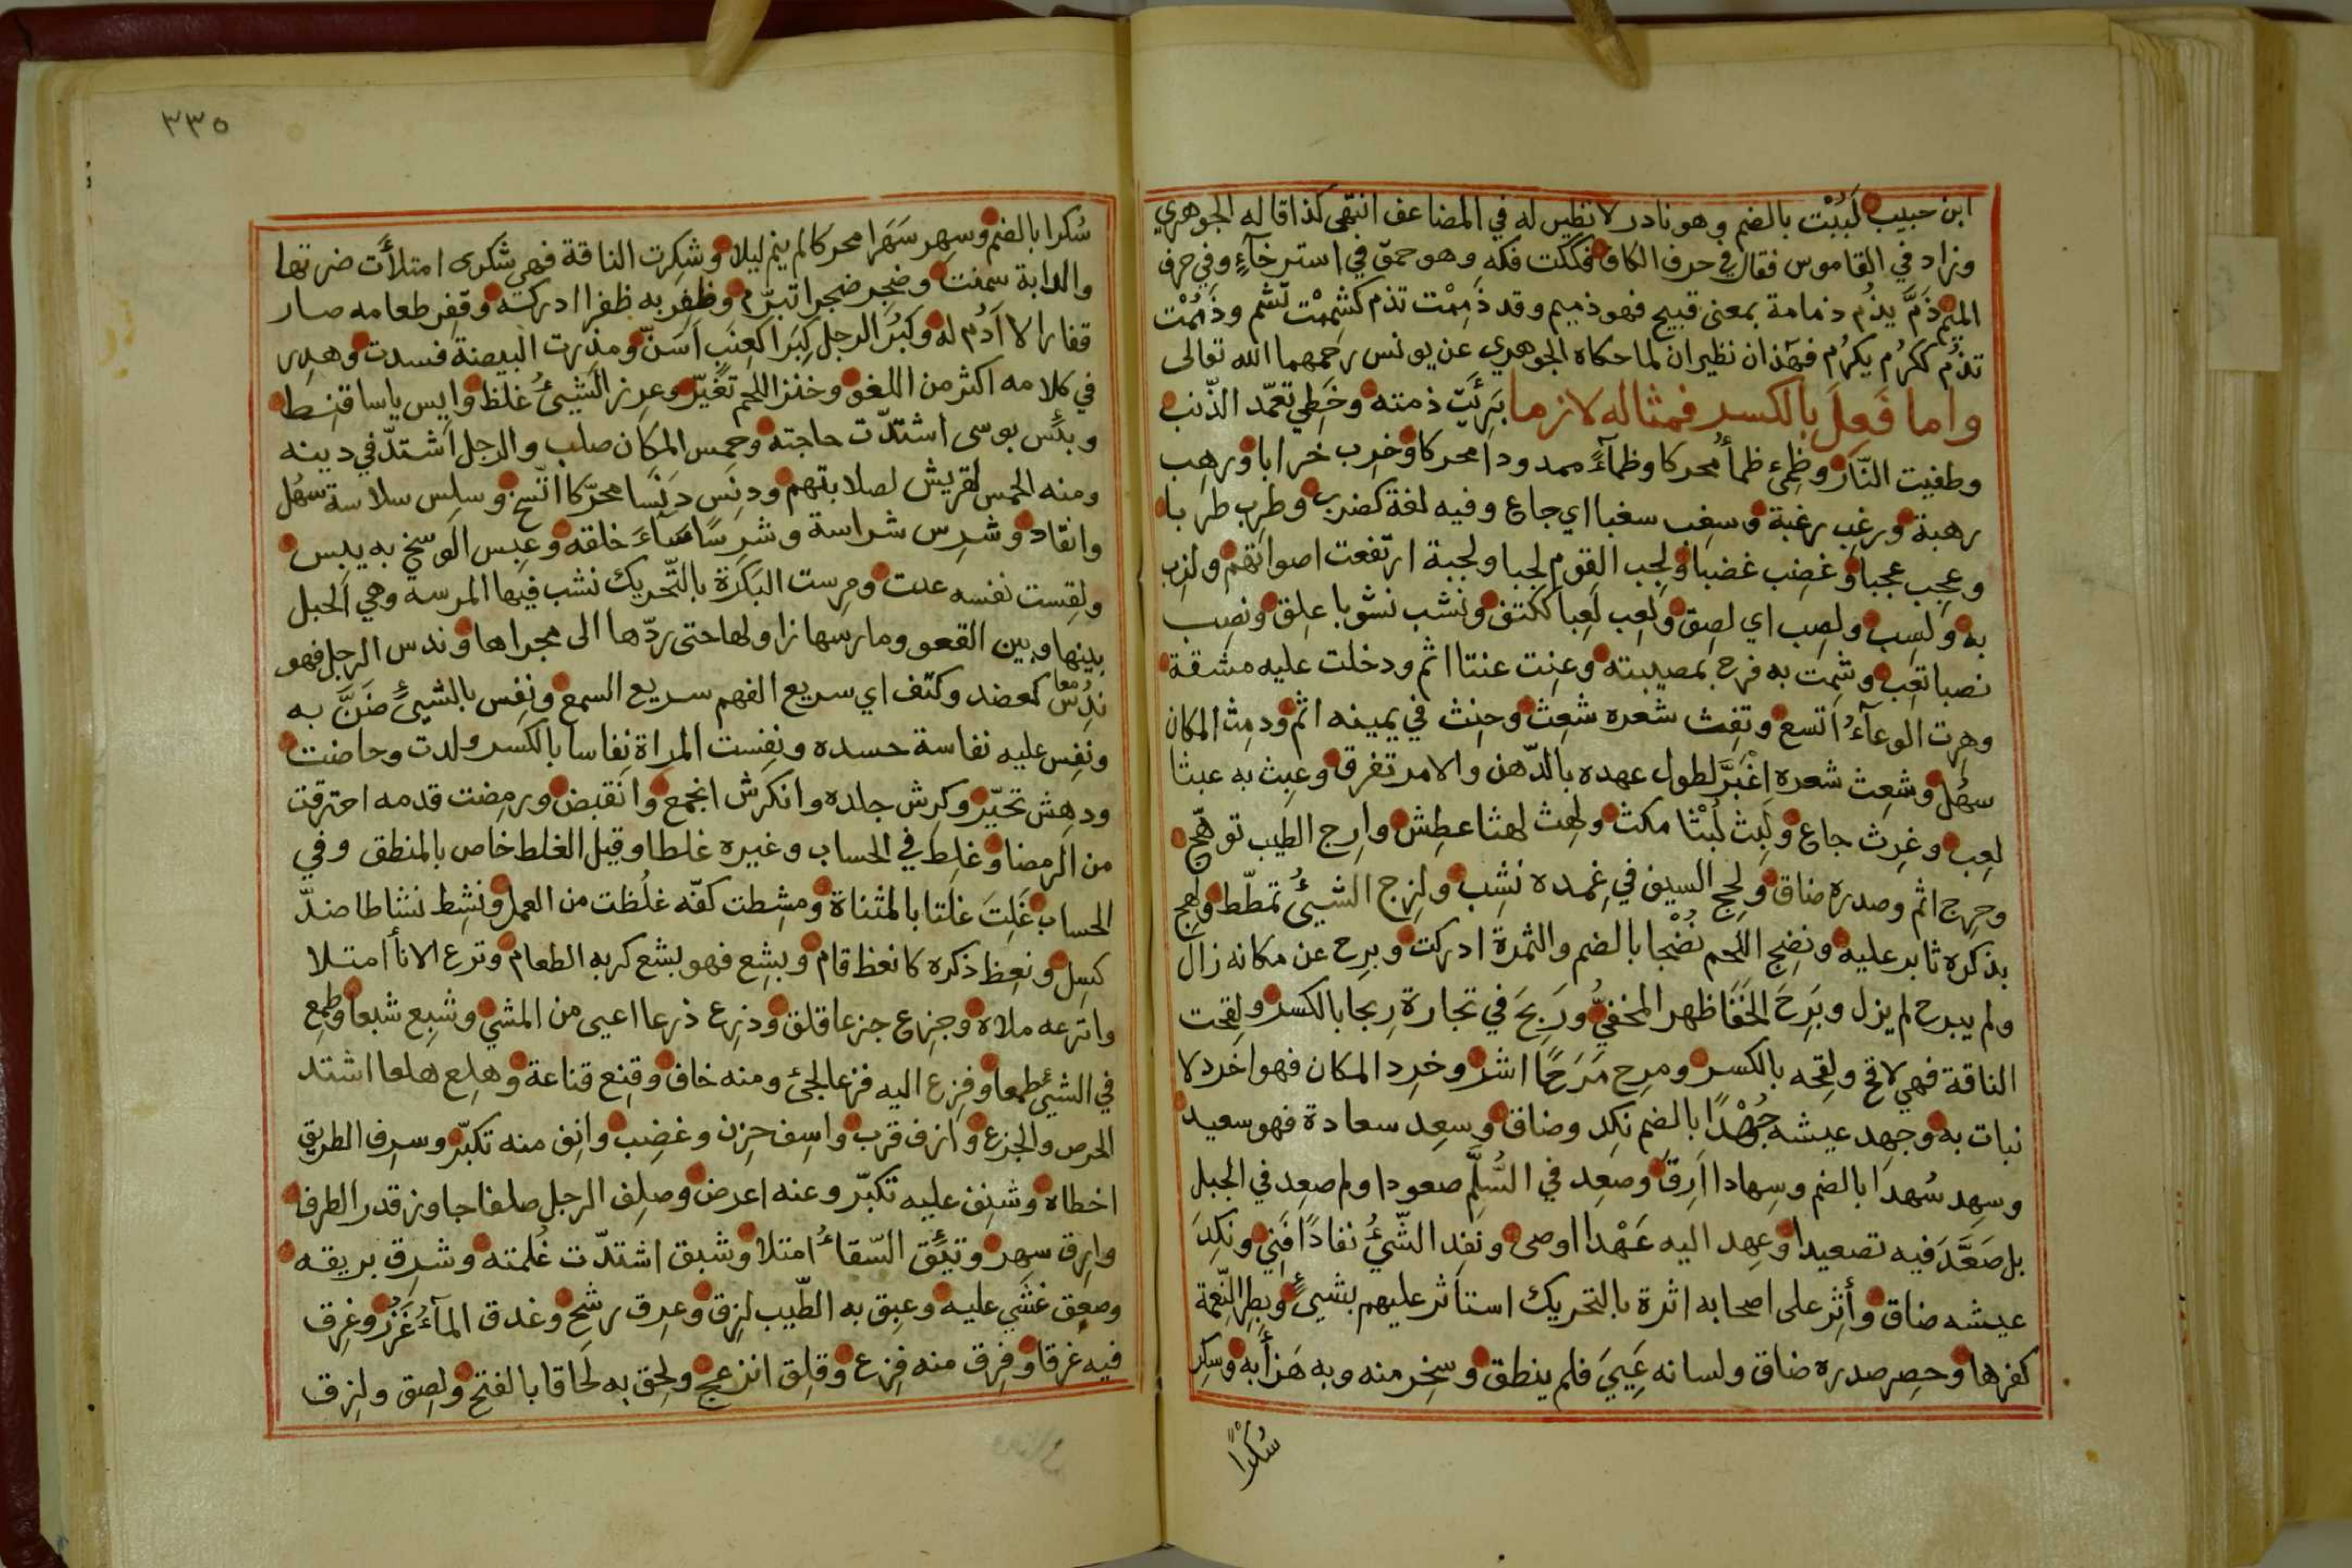 ابن حبيب لَبُبْت بالضم وهو نادر لا نظير له في المضاعف انتهى كذا قاله الجوهري
وزاد في القاموس فقال في حرف الكاف فككت فكه وهو حمق في استرخآءٍ وفي حرف
الميم ذمَّ يذُم ذمامة بمعنى قبيح فهو ذميم وقد ذمِمْت تذم كشمِمْت تشم وذَمُمْت
تذُم ككرُم يكرُم فهذان نظيران لما حكاه الجوهري عن يونس رحمهما الله تعالى
واما فَعِلَ بالكسر فمثاله لازما بَرِئَت ذمته وخَطِي تعمّد الذّنب
وطفيت النّار وظِمِئ ظمأ محركا وظمآءً ممدودا محركا وخرِب خرابا ورهِب
رهبة ورغِب رغبة وسغِب سغبا اي جاع وفيه لغة كضرب وطرِب طربا
وعجِب عجبا وغضِب غضبا ولجِب القوم لجبا ولجبة ارتفعت اصواتهم ولزِب
به ولسِب ولصِب اي لصِق ولعِب لَعِبا ككتف ونشب نشوبا علِق ونصِب
نصبا تعِب وشمِت به فرح بمصيبته وعنِت عنتا اثم ودخلت عليه مشقة
وهرِت الوعآءُ اتسع وتفِث شعره شعِث وحنِث في يمينه اثم ودمِث المكان
سهُل وشعِث شعره اغْبَرَّ لطول عهده بالدّهن والامر تفرق وعبِث به عبثا
لعِب وغرِث جاع ولَبِث لُبْثا مكث ولهِث لهثا عطِش وارِج الطيب توهّج
وحرِج اثم وصدره ضاق ولحِج السيف في غِمده نشِب ولزِج الشيئُ تمطّط ولهِج
بذكره ثابر عليه ونضِج اللّحم نُضْجا بالضم والثمرة ادركت وبرِح عن مكانه زال
ولم يبرح لم يزل وبَرِحَ الخَفَا ظهر المخفيُّ ورَبِحَ في تجارة رِبحا بالكسر ولقِحت
الناقة فهي لاقح ولقِحه بالكسر ومرِح مَرَحًا اشر وخرِد المكان فهو اخرد لا
نبات به وجهِد عيشه جُهْدًا بالضم نكِد وضاق وسعِد سعادة فهو سعيد
وسهِد سُهدا بالضم وسِهادا ارِقَ وصَعِد في السُّلَّمِ صعودا ولم صعِد في الجبل
بل صَعَّدَ فيه تصعيدا وعهِد اليه عَهْدا اوصى ونفِد الشّيُ نفادًا فَنِي ونكِدَ
عيشه ضاق وأثِر على اصحابه اثرة بالتحريك استأثر عليهم بشيئٍ وبطِر النّعمة
كفرها وحصِر صدره ضاق ولسانه عَيِيَ فلم ينطق وسخِر منه وبه هَزأ به وسكِر
سُكْرًا
٣٣٥
سُكرا بالضم وسهِر سَهَرا محركا لم ينم ليلا وشكِرت الناقة فهي شَكرى امتلأت ضرتها
والدابة سمنت وضجِر ضجرا تبرّم وظفِر به ظفرا ادركه وقفِر طعامه صار
قفارا لا اَدُم له وكبُر الرجل كِبَرا كعِنَبٍ اَسَنّ ومذرت البيضة فسدت وهدِر
في كلامه اكثر من اللغو وخنز اللحم تغيّر وعرز الشيئُ غلظ وايِس ياسا قنِط
وبئِس بوسى اشتدّت حاجته وحمِس المكان صلب والرجل اشتدّ في دينه
ومنه الحمس لقريش لصلابتهم ودنِس دَنَسا محرّكا اتّسخ وسلِس سلاسة سهُل
وانقاد وشرِس شراسة وشَرِسًا سآءَ خلقه وعبِس الوسخ به يبس
ولقِست نفسه عدت ومرِست البَكَرَة بالتّحريك نشب فيها المرسه وهي الحبل
بينها وبين القعو ومارسها زاولها حتى ردّها الى مجراها وندس الرجل فهو
نَدِسُ معا كعضد وكتف اي سريع الفهم سريع السمع ونفِس بالشيئِ ضَنَّ به
ونفِس عليه نفاسة حسده ونفِست المراة نِفاسا بالكسر ولدت وحاضت
ودهِش تحيّر وكرِش جلده وانكرش انجمع وانقبض ورمِضت قدمه احترقت
من الرمضا وغلِط في الحساب وغيره غلطا وقيل الغلط خاص بالمنطق وفي
الحساب غَلِتَ غَلَتا بالمثناة ومشِطت كفّه غلُظت من العمل ونشِط نشاطا ضدّ
كسِل ونعِظ ذكره كانعظ قام وبشِع فهو بشع كريه الطعام وترع الانأ امتلا
واترعه ملاه وجزِع جزعا قلق وذرِع ذرعا اعيى من المشي وشبِع شبعا وطمِع
في الشيئ طمعا وفزِع اليه فزعا لجئ ومنه خاف وقنِع قناعة وهلِع هلعا اشتد
الحرص والجزع وازف قرب واسِف حزِن وغضِب وانِف منه تكبّر وسرِف الطريق
اخطاه وشنِف عليه تكبّر وعنه اعرض وصلِف الرجل صلفا جاوز قدر الظرف
وارِق سهِر وتئِق السّقاءُ امتلا وشبق اشتدّت غُلمته وشرِق بريقه
وصعِق غشي عليه وعبِق به الطّيب لزِق وعرِق رشح وغدق المآءُ غَزُر وغرِق
فيه غرقا وفرِق منه فزع وقلِق انزعج ولحِق به لَحاقا بالفتح ولصِق ولزِق